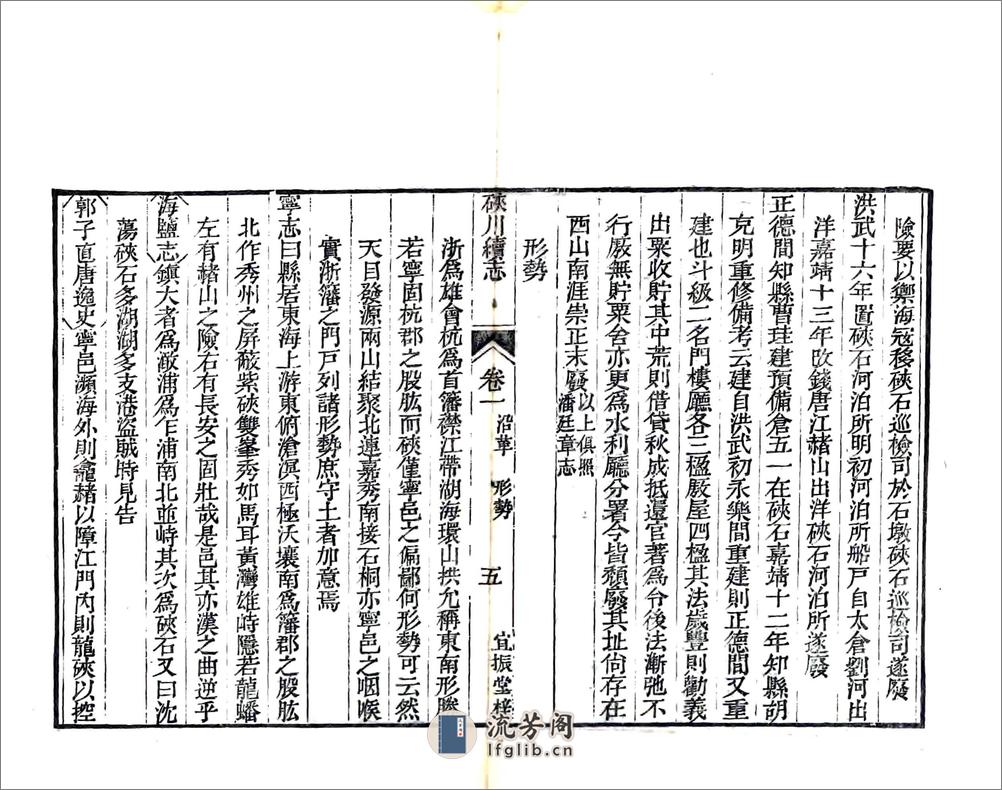 險要以禦海寇移硤石巡檢司於石墩硤石巡檢司遂廢
洪武十六年置硤石河泊所明初河泊所船戸自太倉劉河出
洋嘉靖十三年改錢唐江赭山出洋硤石河泊所遂廢
正德間知縣曹珪建預備倉五一在硤石嘉靖十二年知縣胡
克明重修備考云建自洪武初永樂間重建則正德間又重
建也斗級二名門樓廳各三楹廒屋四楹其法歲豐則勸義
出粟收貯其中荒則借貸秋成抵還官著爲令後法漸弛不
行廒無貯粟舍亦更爲水利廳分署今皆頽廢其址尙存在
西山南涯崇正末廢以上俱照
潘廷章志
形勢
硤川續志
卷一
沿革
形勢
五
宜振堂梓
浙爲雄會杭爲首籓襟江帶湖海環山拱尤稱東南形勝
若寧固杭郡之股肱而硤僅寧邑之偏鄙何形勢可云然
天目發源兩山結聚北連嘉秀南接石桐亦寧邑之咽喉
實浙籓之門戸列諸形勢庶守土者加意焉
寧志曰縣居東海上游東俯滄溟西極沃壤南爲籓郡之股肱
北作秀州之屏蔽紫硤雙峯秀如馬耳黃灣雄峙隱若龍蟠
左有赭山之險右有長安之固壯哉是邑其亦漢之曲逆乎
海鹽志鎮大者爲澉浦爲乍浦南北並峙其次爲硤石又曰沈
蕩硤石多湖湖多支港盜賊時見告
郭子直唐逸史寧邑瀕海外則龕赭以障江門內則龍硤以控
流芳阁
lfglib.cn